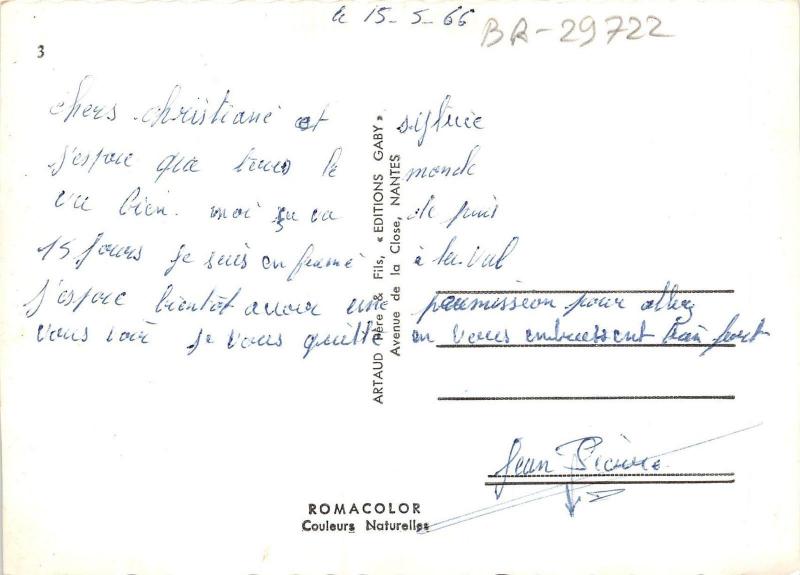 le 15-5-66
BR-29722
3
chers christiane et sylvie
j'espere que tous le monde
va bien. moi ça va de puis
15 jours je suis en france à laval
j'espere bientôt avoir une permission pour allez
vous voir je vous quitte en vous embrassent bien fort
Jean Pierre
ARTAUD Père & Fils, « EDITIONS GABY »
Avenue de la Close, NANTES
ROMACOLOR
Couleurs Naturelles